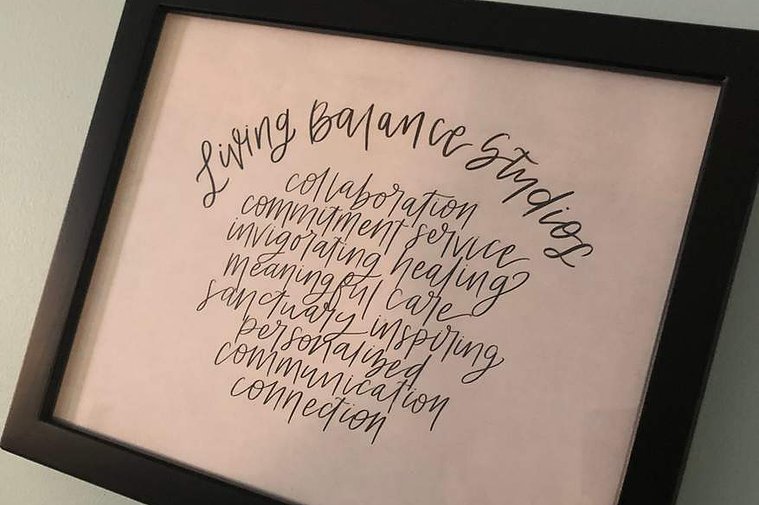 Living Balance Studios
collaboration
commitment service
invigorating healing
meaningful care
sanctuary inspiring
personalized
communication
connection